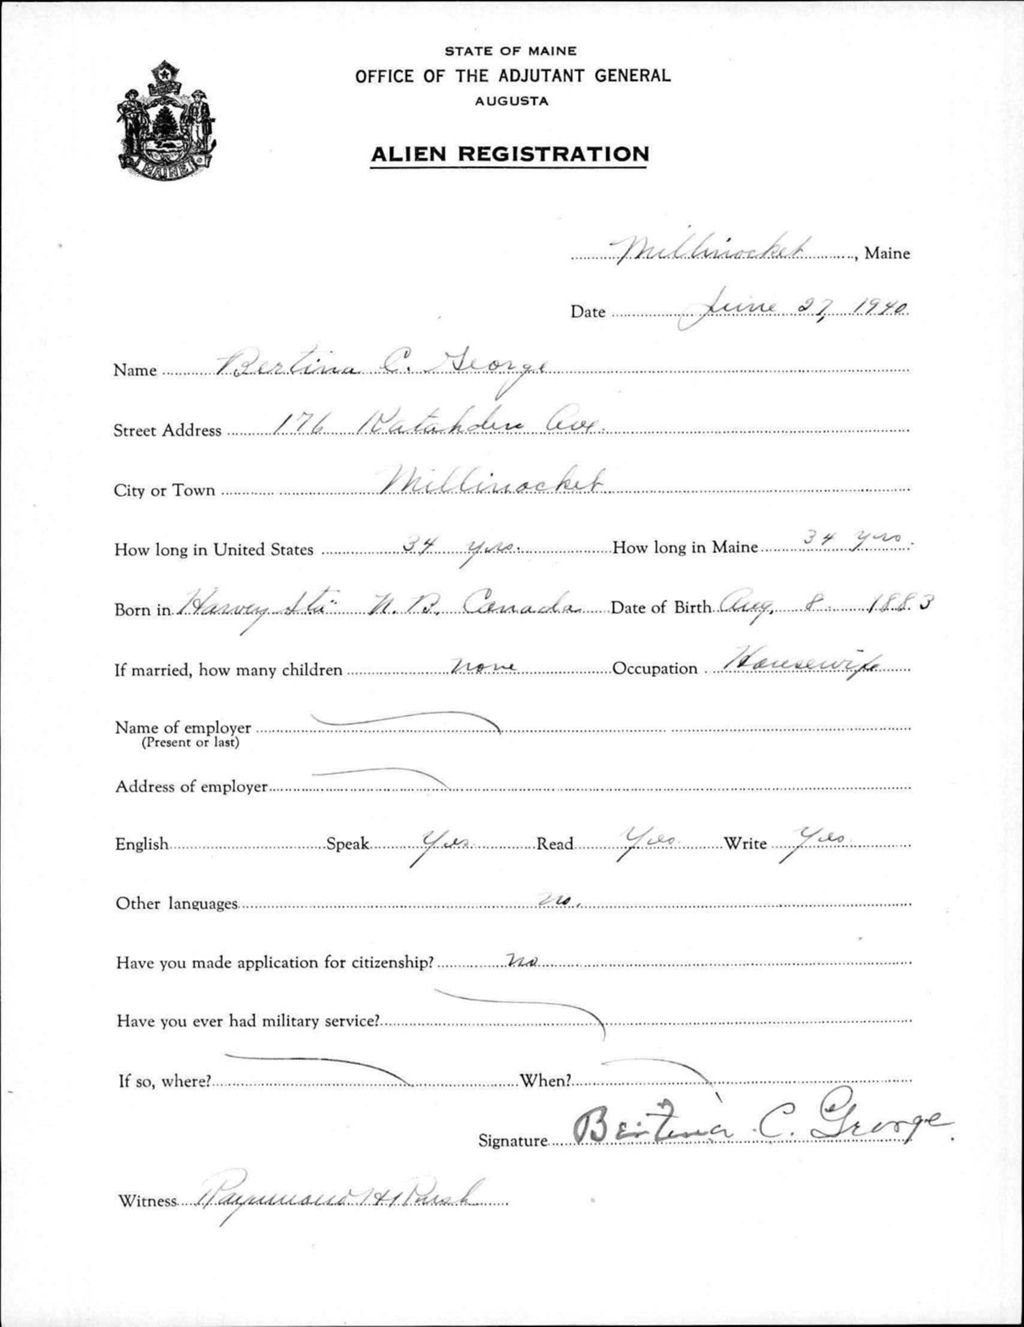 STATE OF MAINE
OFFICE OF THE ADJUTANT GENERAL
AUGUSTA
ALIEN REGISTRATION
MAINE
Millinocket, Maine
Date June 27, 1940
Name Bertina C. George
Street Address 176 Katahden Ave.
City or Town Millinocket
How long in United States 34 yrs. How long in Maine 34 yrs.
Born in Harvey Sta" N. B. Canada Date of Birth Aug. 8. 1883
If married, how many children none Occupation Housewife
Name of employer
(Present or last)
Address of employer
English Speak Yes Read Yes Write Yes
Other languages no.
Have you made application for citizenship? No
Have you ever had military service?
If so, where? When?
Signature Bertina C. George.
Witness Raymond H